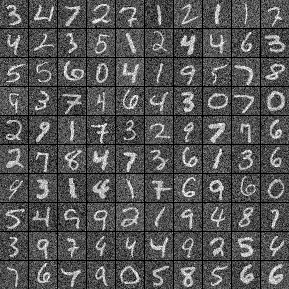 3 4 7 2 7 1 2 1 1 7
4 2 3 5 1 2 4 4 6 3
5 5 6 0 4 1 9 5 7 8
9 3 7 4 6 4 3 0 7 0
2 9 1 7 3 2 9 7 7 6
2 7 8 4 7 3 6 1 3 6
9 3 1 4 1 7 6 9 6 0
5 4 9 9 2 1 9 4 8 7
3 9 7 9 4 4 9 2 5 4
7 6 7 9 0 5 8 5 6 6